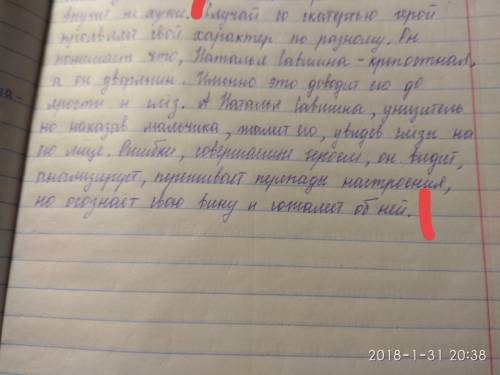 внушил не хуже. Случай со скатертью герой
проявляет свой характер по разному. Он
понимает что, Наталья Савишна - крепостная,
а он дворянин. Именно это доводит его до
ярости и слёз. А Наталья Савишна, унизитель
но наказав мальчика, жалеет его, увидев слёзы на
его лице. Ошибки, совершаемые героем, он видит,
анализирует, переживает перепады настроения,
но осознает свою вину и сожалеет об ней.
2018-1-31 20:38